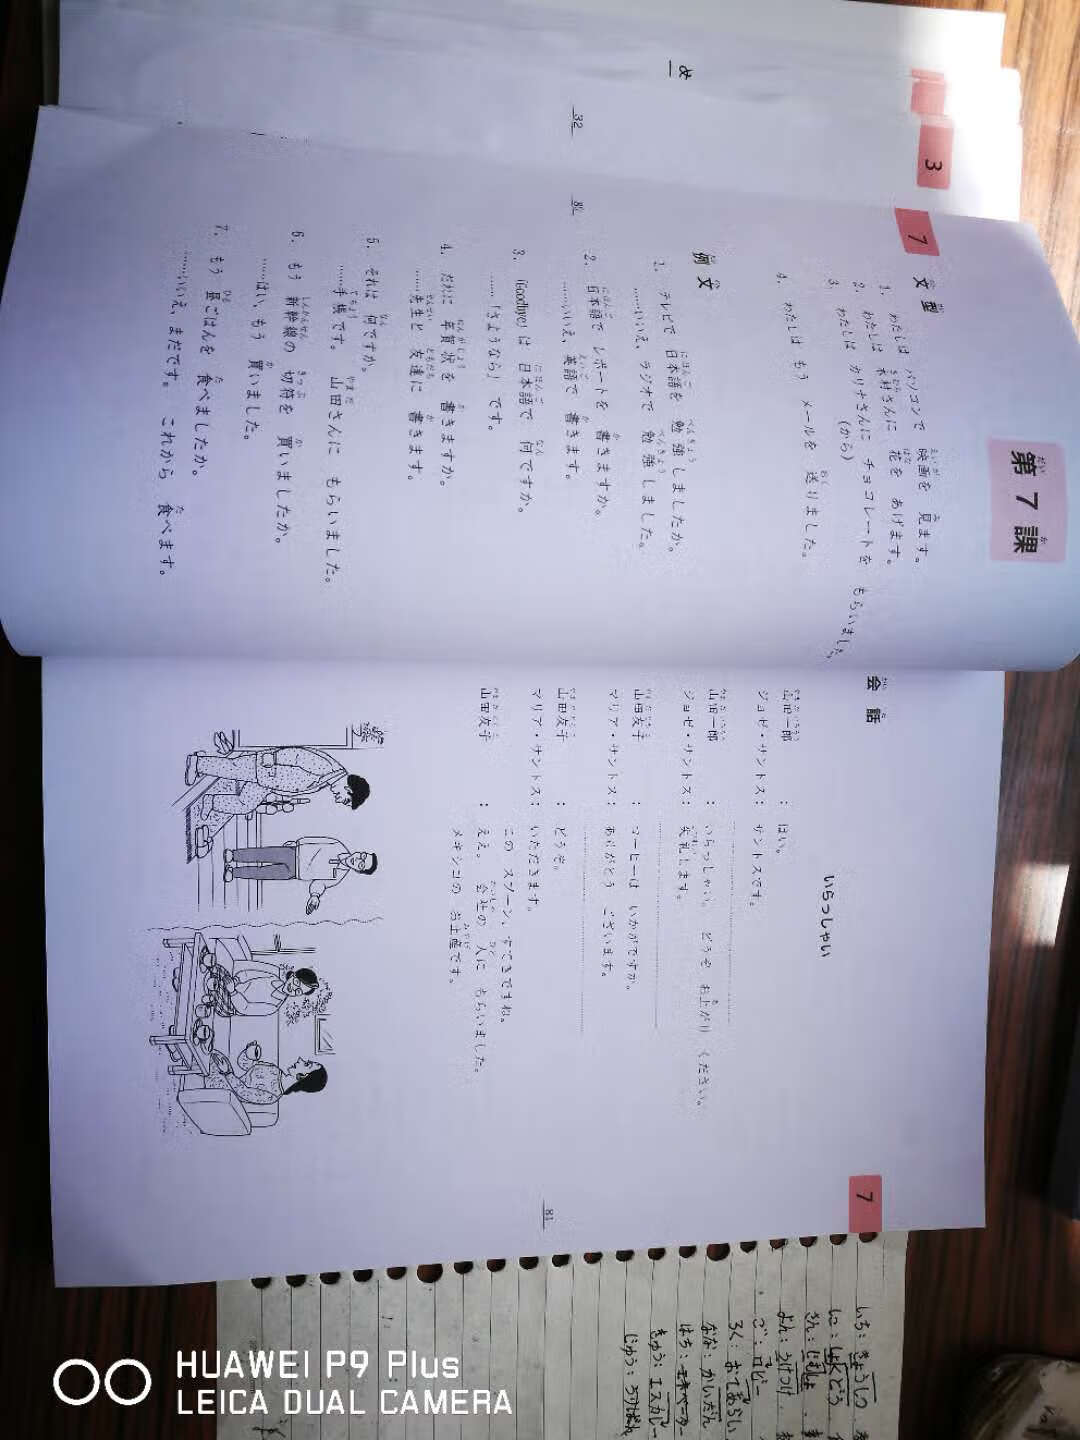 め
32
3
7
第7課
文型
1. わたしは パソコンで 映画を 見ます。
2. わたしは 木村さんに 花を あげます。
3. わたしは カリナさんに(から) チョコレートを もらいました。
4. わたしは もう メールを 送りました。
例文
1. テレビで 日本語を 勉強しましたか。
……いいえ、ラジオで 勉強しました。
2. 日本語で レポートを 書きますか。
……いいえ、英語で 書きます。
3. 「Goodbye」は 日本語で 何ですか。
……「さようなら」です。
4. だれに 年賀状を 書きますか。
……先生と 友達に 書きます。
5. それは 何ですか。
……手帳です。 山田さんに もらいました。
6. もう 新幹線の 切符を 買いましたか。
……はい、もう 買いました。
7. もう 昼ごはんを 食べましたか。
……いいえ、まだです。 これから 食べます。
会話
いらっしゃい
山田一郎 : はい。
ジョゼ・サントス: サントスです。
山田一郎 : いらっしゃい。 どうぞ お上がり ください。
ジョゼ・サントス: 失礼します。
山田友子 : コーヒーは いかがですか。
マリア・サントス: ありがとう ございます。
山田友子 : どうぞ。
マリア・サントス: いただきます。
この スプーン、すてきですね。
山田友子 : ええ。 会社の 人に もらいました。
メキシコの お土産です。
81
7
いち: きょうしつ
に: しょくどう
さん: じむしょ
よん: うけつけ
ご: ロビー
ろく: おてあらい
なな: かいだん
はち: エレベーター
きゅう: エスカレー
じゅう:
HUAWEI P9 Plus
LEICA DUAL CAMERA